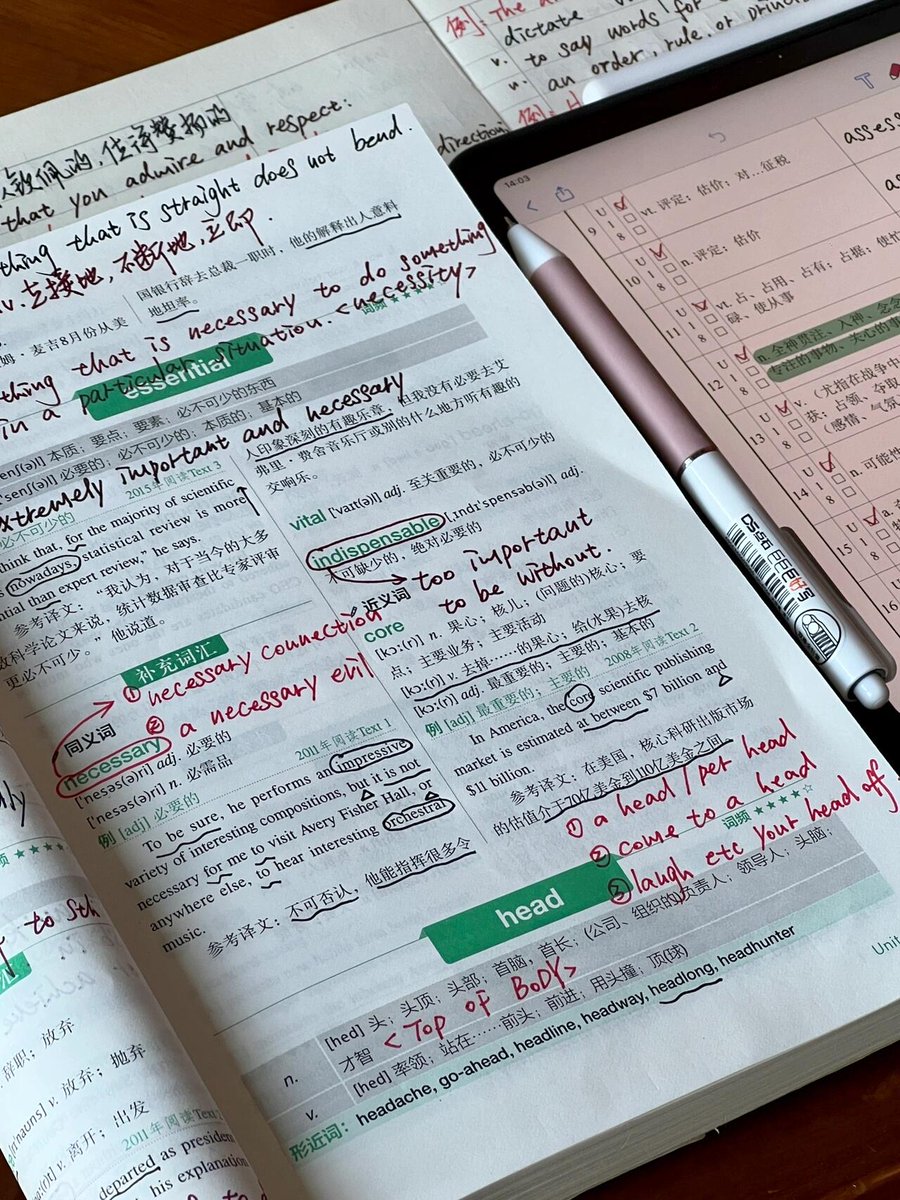 钦佩的，值得赞扬的
that you admire and respect:
direction
例：The
dictate
v. to say words for
v. an order, rule, or princi
例：H
thing that is straight does not bend.
v. 直接地，不断地，立即.
姆·麦吉8月份从美
国银行辞去总裁一职时，他的解释出人意料
地坦率。
thing that is necessary to do something
in a particular situation. <necessity>
词频 ★★★★
essential
本质；要点；要素；必不可少的东西
必要的；必不可少的；本质的；基本的
extremely important and necessary
必不可少的
2015年阅读Text 3
think that, for the majority of scientific
nowadays, statistical review is more
ential than expert review,” he says.
参考译文：“我认为，对于当今的大多
数科学论文来说，统计数据审查比专家评审
更必不可少。”他说道。
补充词汇
① necessary connection
② a necessary evil
同义词
necessary
['nesəs(ə)ri] adj. 必要的
['nesəs(ə)ri] n. 必需品
例 [adj] 必要的
2011年阅读Text 1
To be sure, he performs an impressive
variety of interesting compositions, but it is not
necessary for me to visit Avery Fisher Hall, or
anywhere else, to hear interesting orchestral
music.
参考译文：不可否认，他能指挥很多令
人印象深刻的有趣乐章，但我没有必要去艾
弗里·费舍音乐厅或别的什么地方听有趣的
交响乐。
vital ['vaɪt(ə)l] adj. 至关重要的，必不可少的
indispensable [ˌɪndɪ'spensəb(ə)l] adj.
不可缺少的，绝对必要的
too important
to be without.
近义词
core
[kɔː(r)] n. 果心；核儿；(问题的)核心；要
点；主要业务；主要活动
[kɔː(r)] v. 去掉……的果心；给(水果)去核
[kɔː(r)] adj. 最重要的；主要的；基本的
例 [adj] 最重要的；主要的 2008年阅读Text 2
In America, the core scientific publishing
market is estimated at between $7 billion and
$11 billion.
参考译文：在美国，核心科研出版市场
的估值介于70亿美金到110亿美金之间。
① a head / per head
② come to a head
③ laugh etc your head off
词频 ★★★★☆
head
n.
[hed] 头；头顶；头部；首脑，首长；(公司、组织的)负责人；领导人；头脑；
才智
<TOP OF BODY>
v.
[hed] 率领；站在……前头；前进；用头撞；顶(球)
形近词：headache, go-ahead, headline, headway, headlong, headhunter
Unit
词频 ★★★★
to sth
辞职；放弃
v. 放弃；抛弃
v. 离开；出发
2011年阅读Text 2
departed as president
his explanation
14:03
assess
9 U 1 8 vt. 评定；估价；对…征税
10 U 1 8 n. 评定；估价
11 U 1 8 vt. 占、占用、占有；占据，使忙
碌、使从事
12 U 1 8 n. 全神贯注、入神、念念
专注的事物、关心的事
13 U 1 8 v. (尤指在战争中
获；占领、夺取
(感情、气氛
14 U 1 8 n. 可能性
15 U 1 8 a.
16